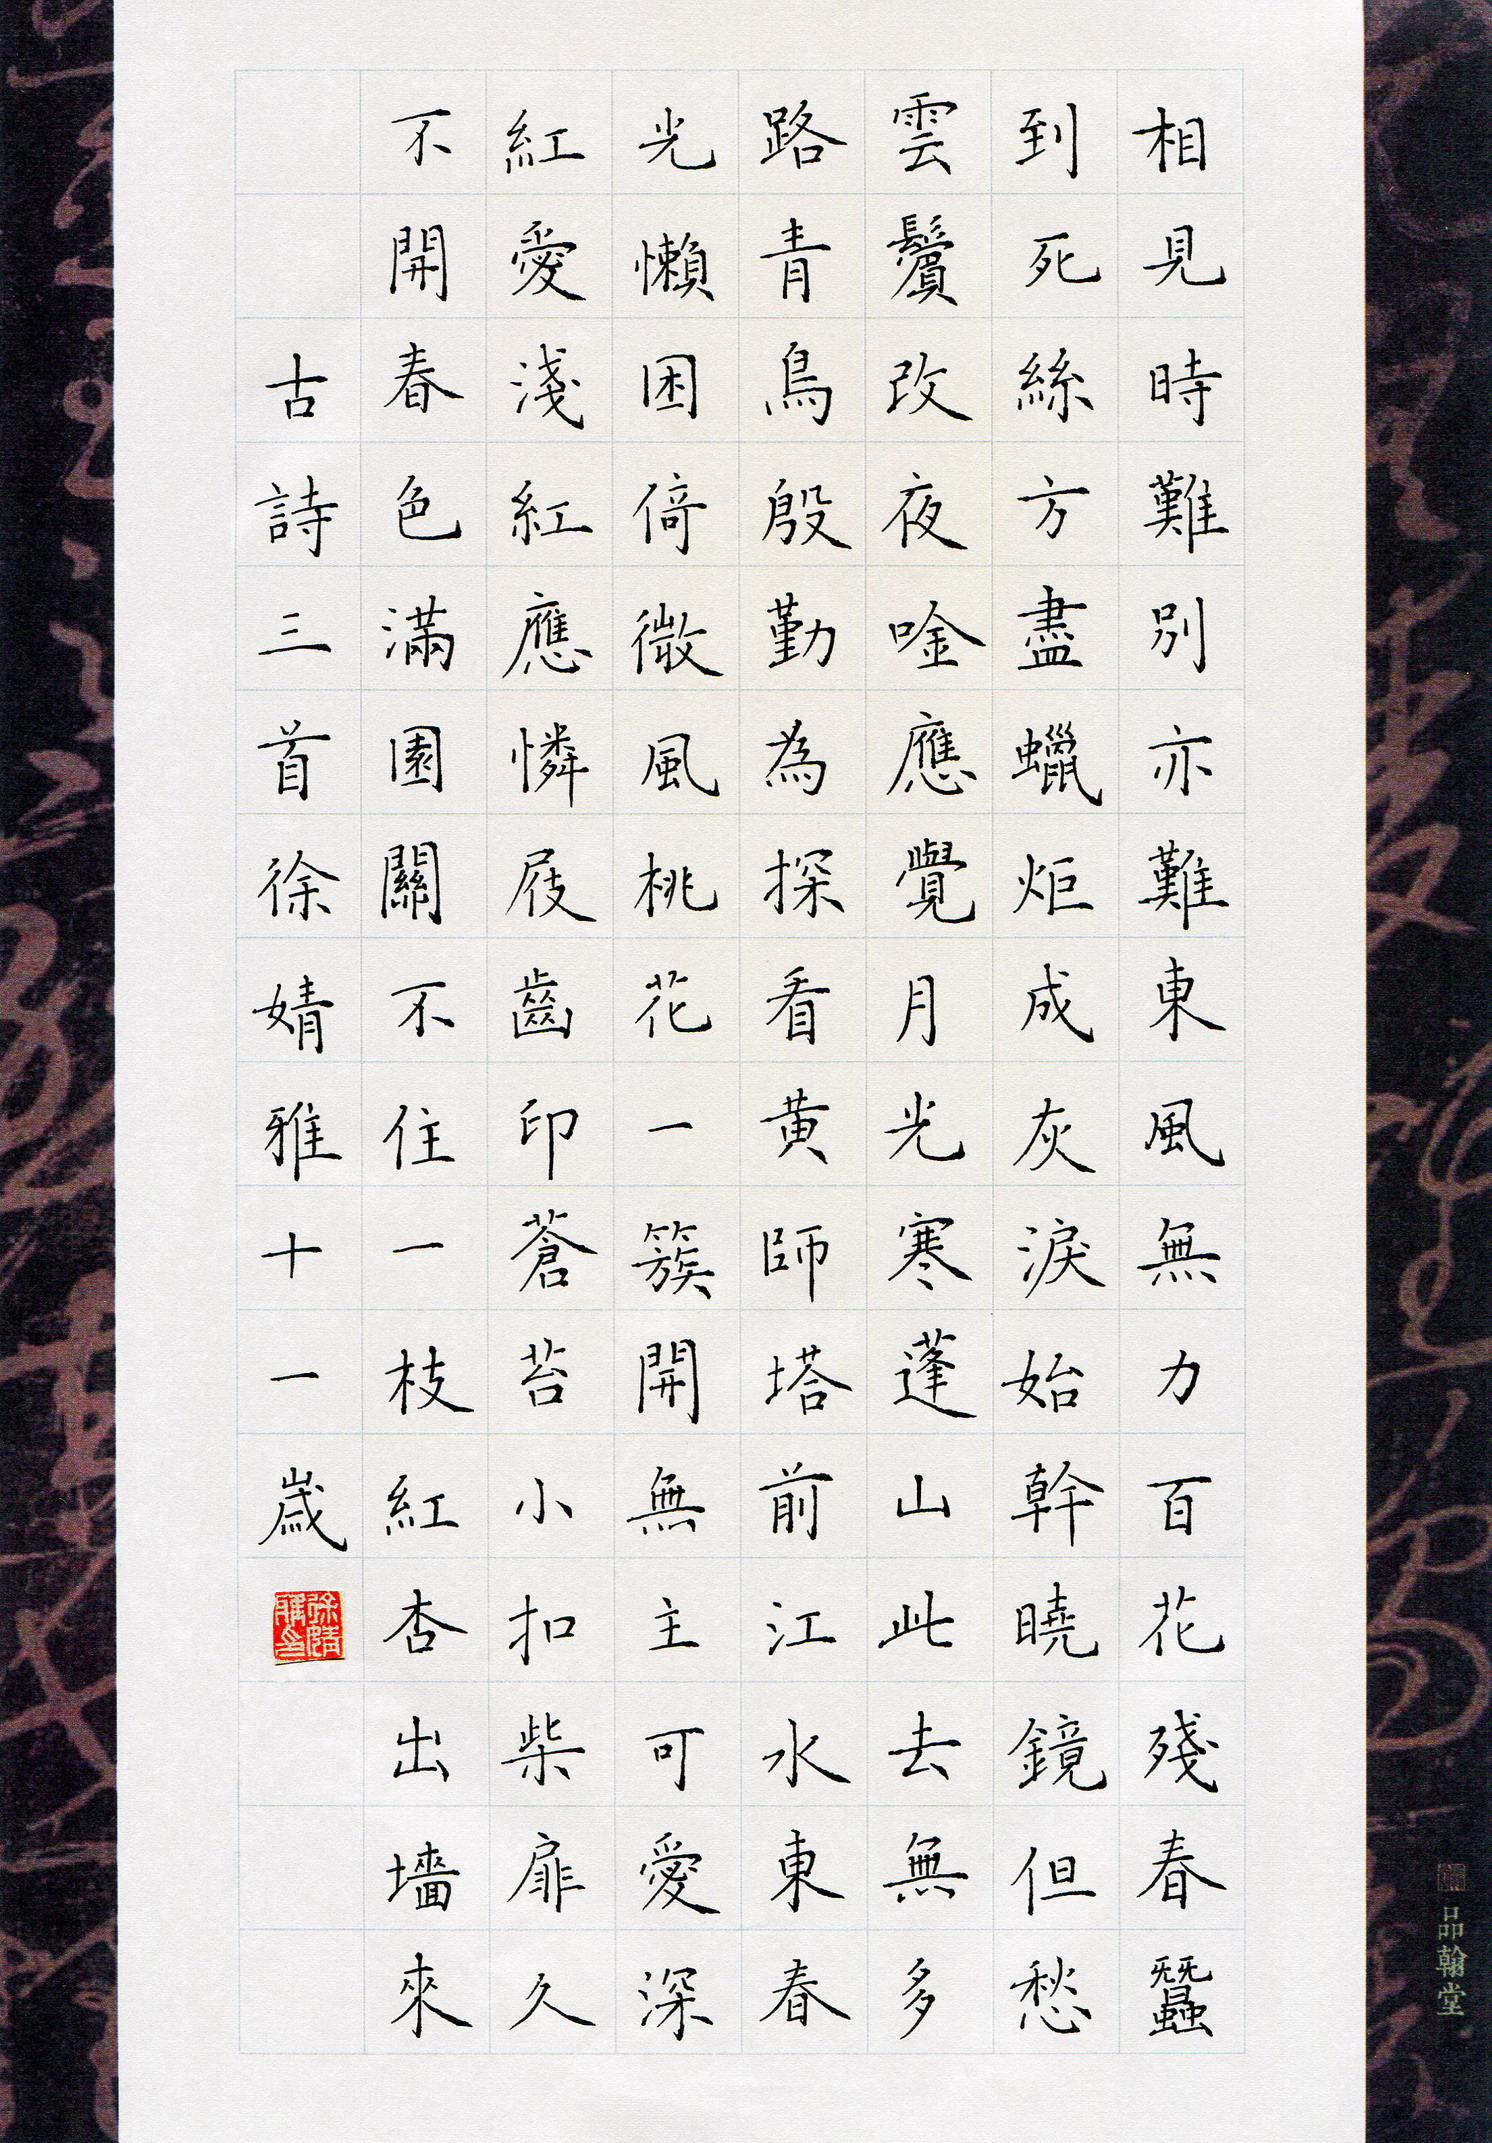 相見時難別亦難東風無力百花殘春蠶
到死絲方盡蠟炬成灰淚始幹曉鏡但愁
雲鬢改夜唫應覺月光寒蓬山此去無多
路青鳥殷勤為探看黃師塔前江水東春
光懶困倚微風桃花一簇開無主可愛深
紅愛淺紅應憐屐齒印蒼苔小扣柴扉久
不開春色滿園關不住一枝紅杏出墻來
古詩三首徐婧雅十一歲
徐婧雅印
品翰堂